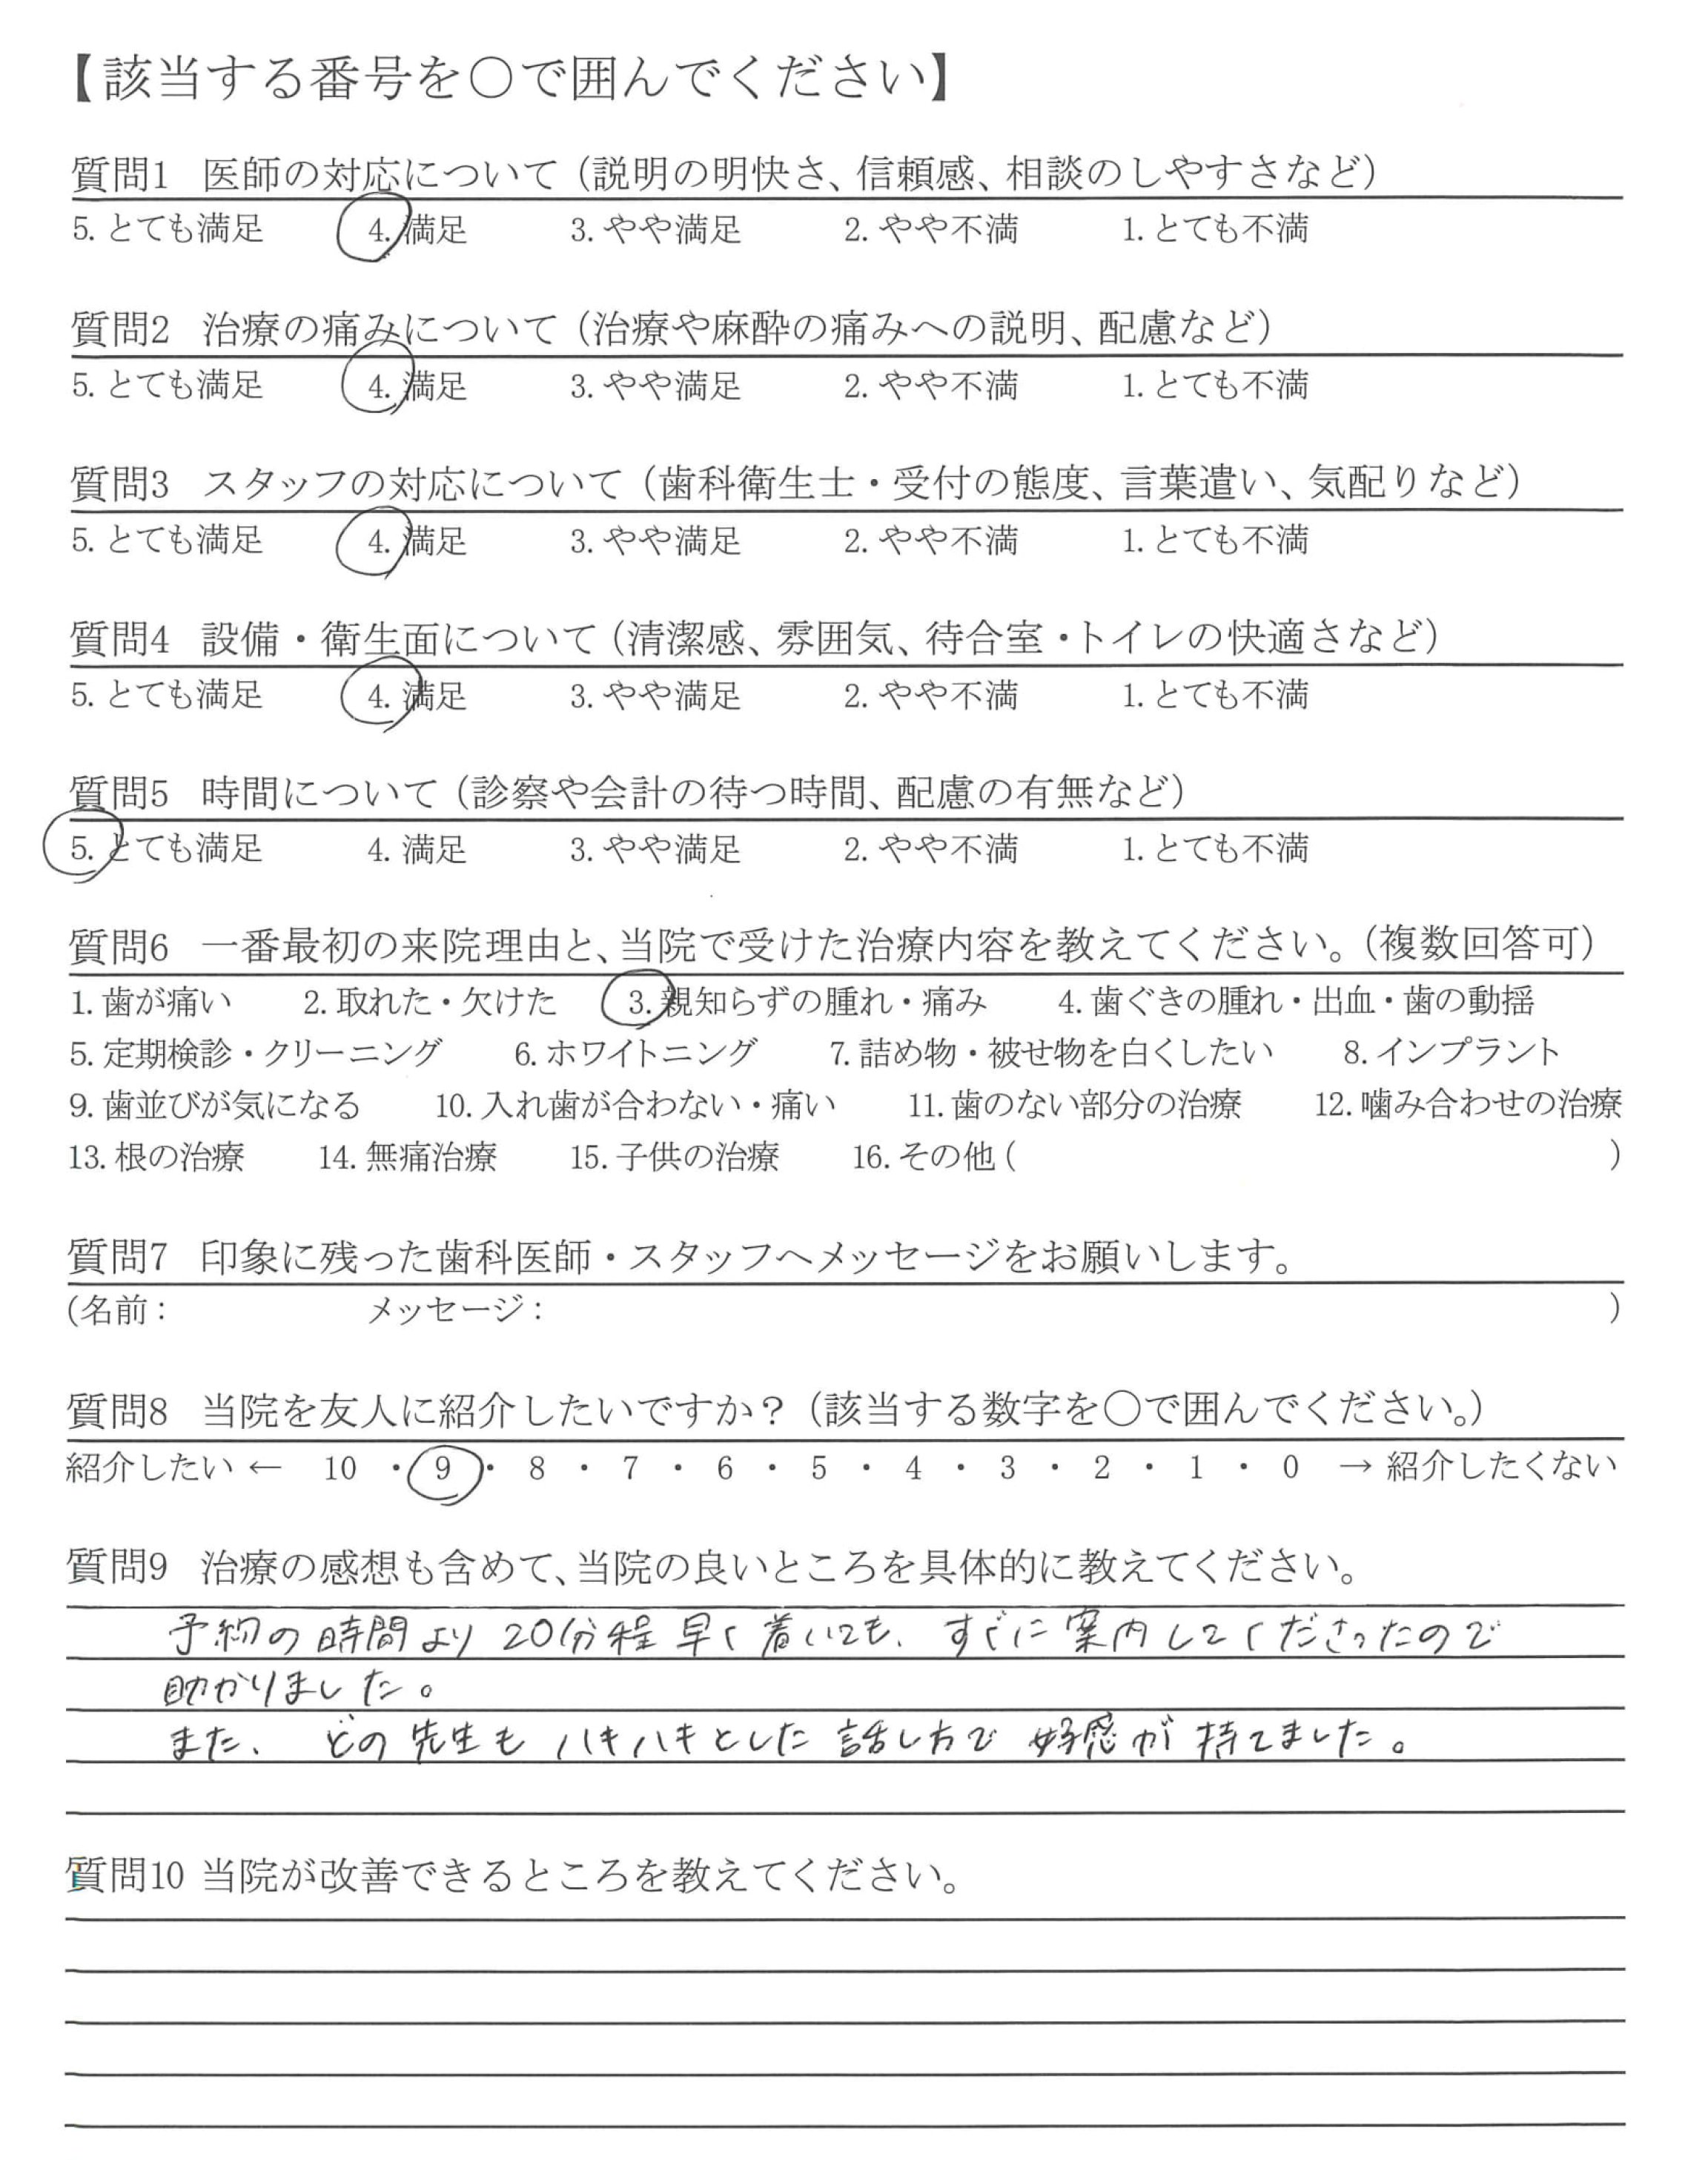 【該当する番号を○で囲んでください】
質問1 医師の対応について（説明の明快さ、信頼感、相談のしやすさなど）
5. とても満足 4. 満足 3. やや満足 2. やや不満 1. とても不満
質問2 治療の痛みについて（治療や麻酔の痛みへの説明、配慮など）
5. とても満足 4. 満足 3. やや満足 2. やや不満 1. とても不満
質問3 スタッフの対応について（歯科衛生士・受付の態度、言葉遣い、気配りなど）
5. とても満足 4. 満足 3. やや満足 2. やや不満 1. とても不満
質問4 設備・衛生面について（清潔感、雰囲気、待合室・トイレの快適さなど）
5. とても満足 4. 満足 3. やや満足 2. やや不満 1. とても不満
質問5 時間について（診察や会計の待つ時間、配慮の有無など）
5. とても満足 4. 満足 3. やや満足 2. やや不満 1. とても不満
質問6 一番最初の来院理由と、当院で受けた治療内容を教えてください。（複数回答可）
1. 歯が痛い 2. 取れた・欠けた 3. 親知らずの腫れ・痛み 4. 歯ぐきの腫れ・出血・歯の動揺
5. 定期検診・クリーニング 6. ホワイトニング 7. 詰め物・被せ物を白くしたい 8. インプラント
9. 歯並びが気になる 10. 入れ歯が合わない・痛い 11. 歯のない部分の治療 12. 噛み合わせの治療
13. 根の治療 14. 無痛治療 15. 子供の治療 16. その他（ ）
質問7 印象に残った歯科医師・スタッフへメッセージをお願いします。
（名前： メッセージ： ）
質問8 当院を友人に紹介したいですか？（該当する数字を○で囲んでください。）
紹介したい ← 10 ・ 9 ・ 8 ・ 7 ・ 6 ・ 5 ・ 4 ・ 3 ・ 2 ・ 1 ・ 0 → 紹介したくない
質問9 治療の感想も含めて、当院の良いところを具体的に教えてください。
予約の時間より 20分程 早く着いても、すぐに案内してくださったので
助かりました。
また、どの先生も ハキハキとした 話し方で 好感が 持てました。
質問10 当院が改善できるところを教えてください。